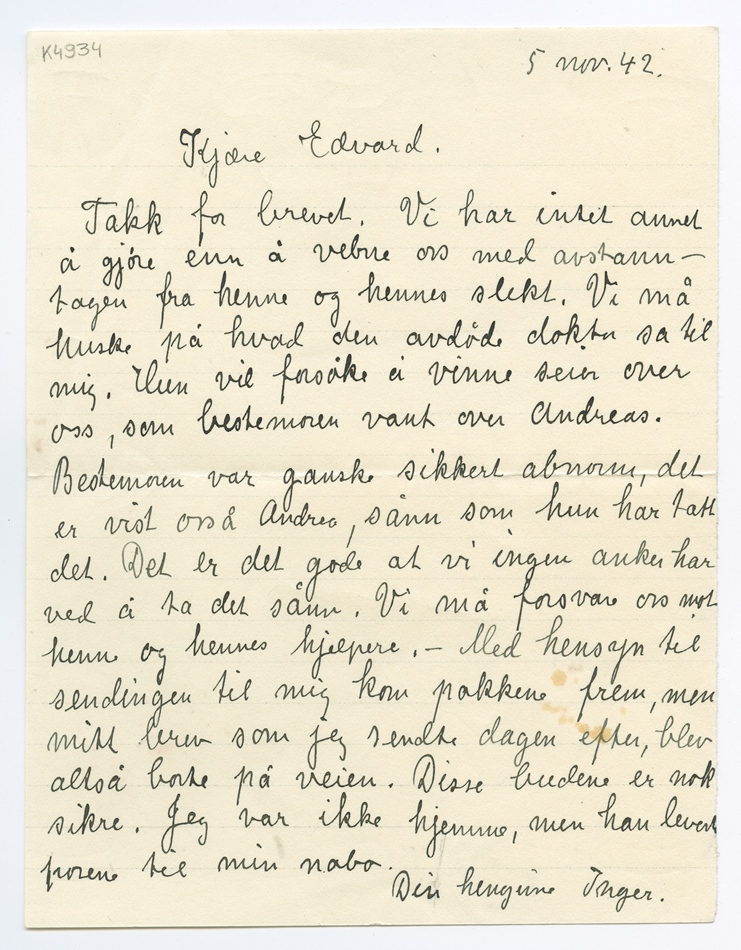 K4934
5 nov. 42.
Kjære Edvard.
Takk for brevet. Vi har intet annet
å gjöre enn å vebne oss med avstann-
tagen fra henne og hennes slekt. Vi må
huske på hvad den avdöde dokter sa til
mig. Hun vil forsöke å vinne seier over
oss, som bestemoren vant over Andreas.
Bestemoren var ganske sikkert abnorm, det
er vist også Andrea, sånn som hun har tatt
det. Det er det gode at vi ingen anker har
ved å ta det sånn. Vi må forsvare oss mot
henne og hennes hjelpere. - Med hensyn til
sendingen til mig kom pakkene frem, men
mitt brev som jeg sendte dagen efter, blev
altså borte på veien. Disse budene er nok
sikre. Jeg var ikke hjemme, men han levert
posene til min nabo.
Din hengivne Inger.